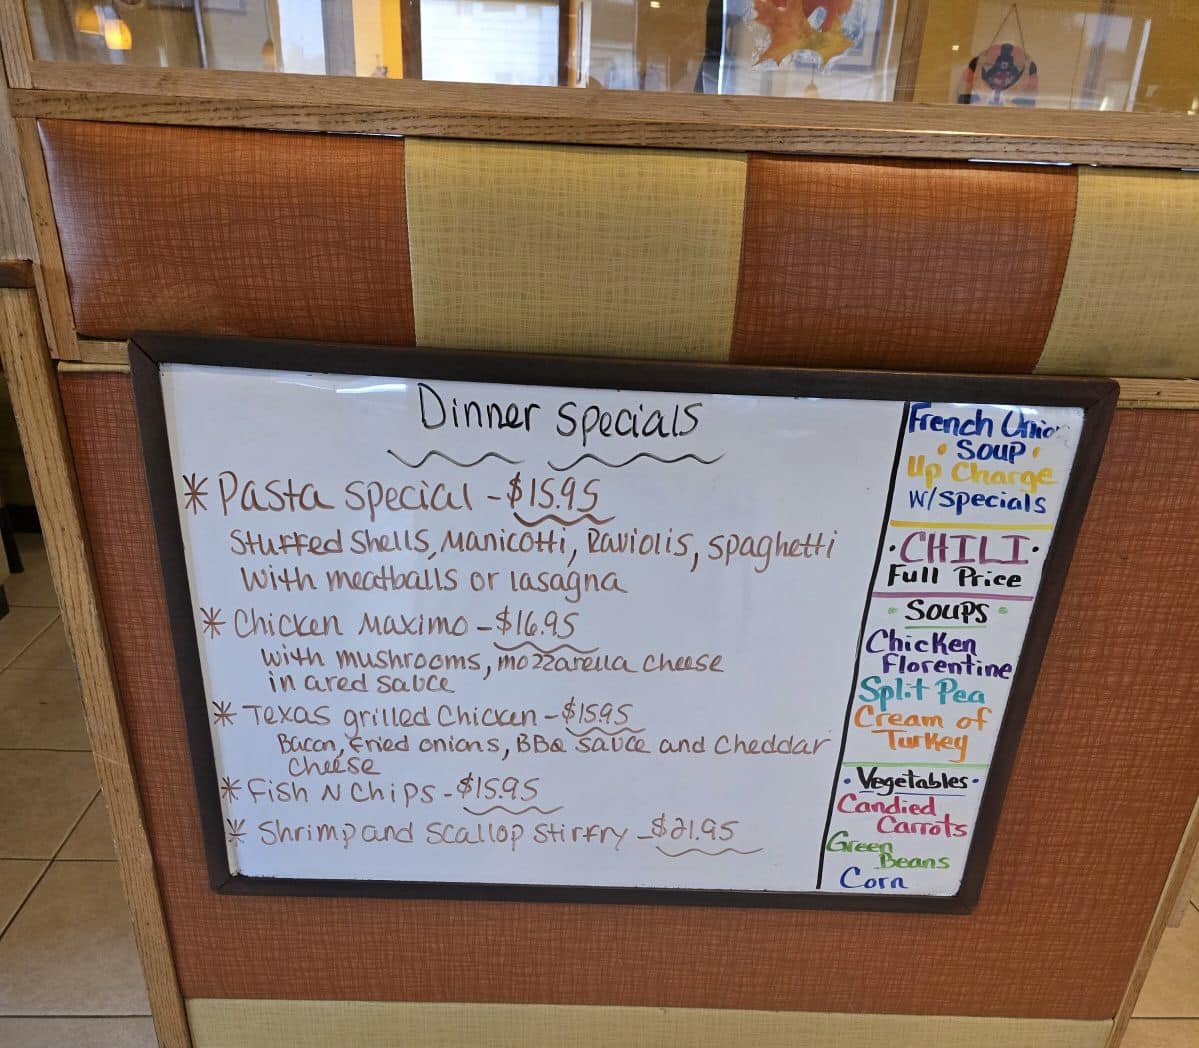 Dinner Specials
* Pasta Special - $15.95
Stuffed Shells, Manicotti, Raviolis, Spaghetti
with meatballs or lasagna
* Chicken Maximo - $16.95
with mushrooms, mozzarella cheese
in a red sauce
* Texas grilled Chicken - $15.95
Bacon, fried onions, BBQ sauce and Cheddar
cheese
* Fish N Chips - $15.95
* Shrimp and Scallop Stirfry - $21.95
French Onion
• Soup •
Up Charge
w/ specials
• CHILI •
Full Price
• Soups •
Chicken
Florentine
Split Pea
Cream of
Turkey
• Vegetables •
Candied
Carrots
Green
Beans
Corn